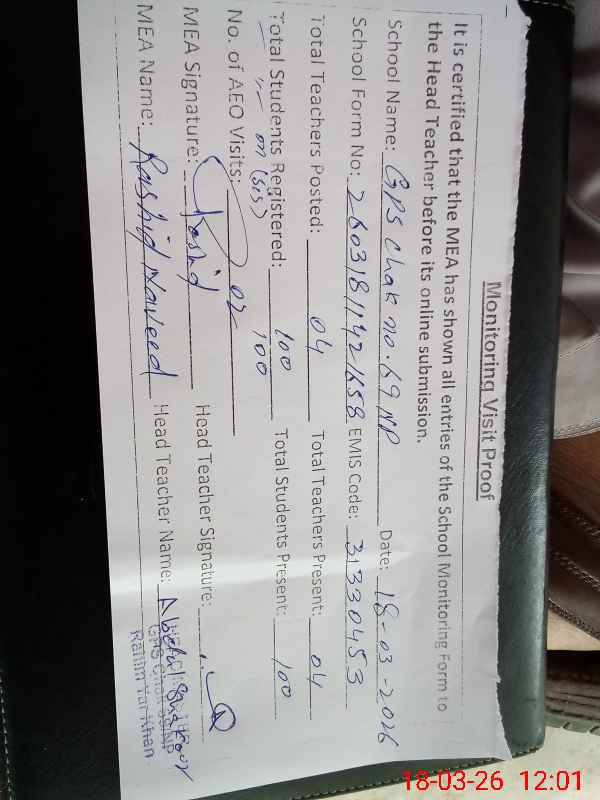 Monitoring Visit Proof
It is certified that the MEA has shown all entries of the School Monitoring Form to
the Head Teacher before its online submission.
School Name: GPS Chak no. 69 NP Date: 18-03-2026
School Form No: 26031811421658 EMIS Code: 31330453
Total Teachers Posted: 04 Total Teachers Present: 04
Total Students Registered: 100 Total Students Present: 100
on (SIS) 100
No. of AEO Visits: 02
MEA Signature: Rashid Head Teacher Signature:
MEA Name: Rashid Naveed Head Teacher Name: Abdul Shakoor
Rahim Yar Khan
18-03-26 12:01